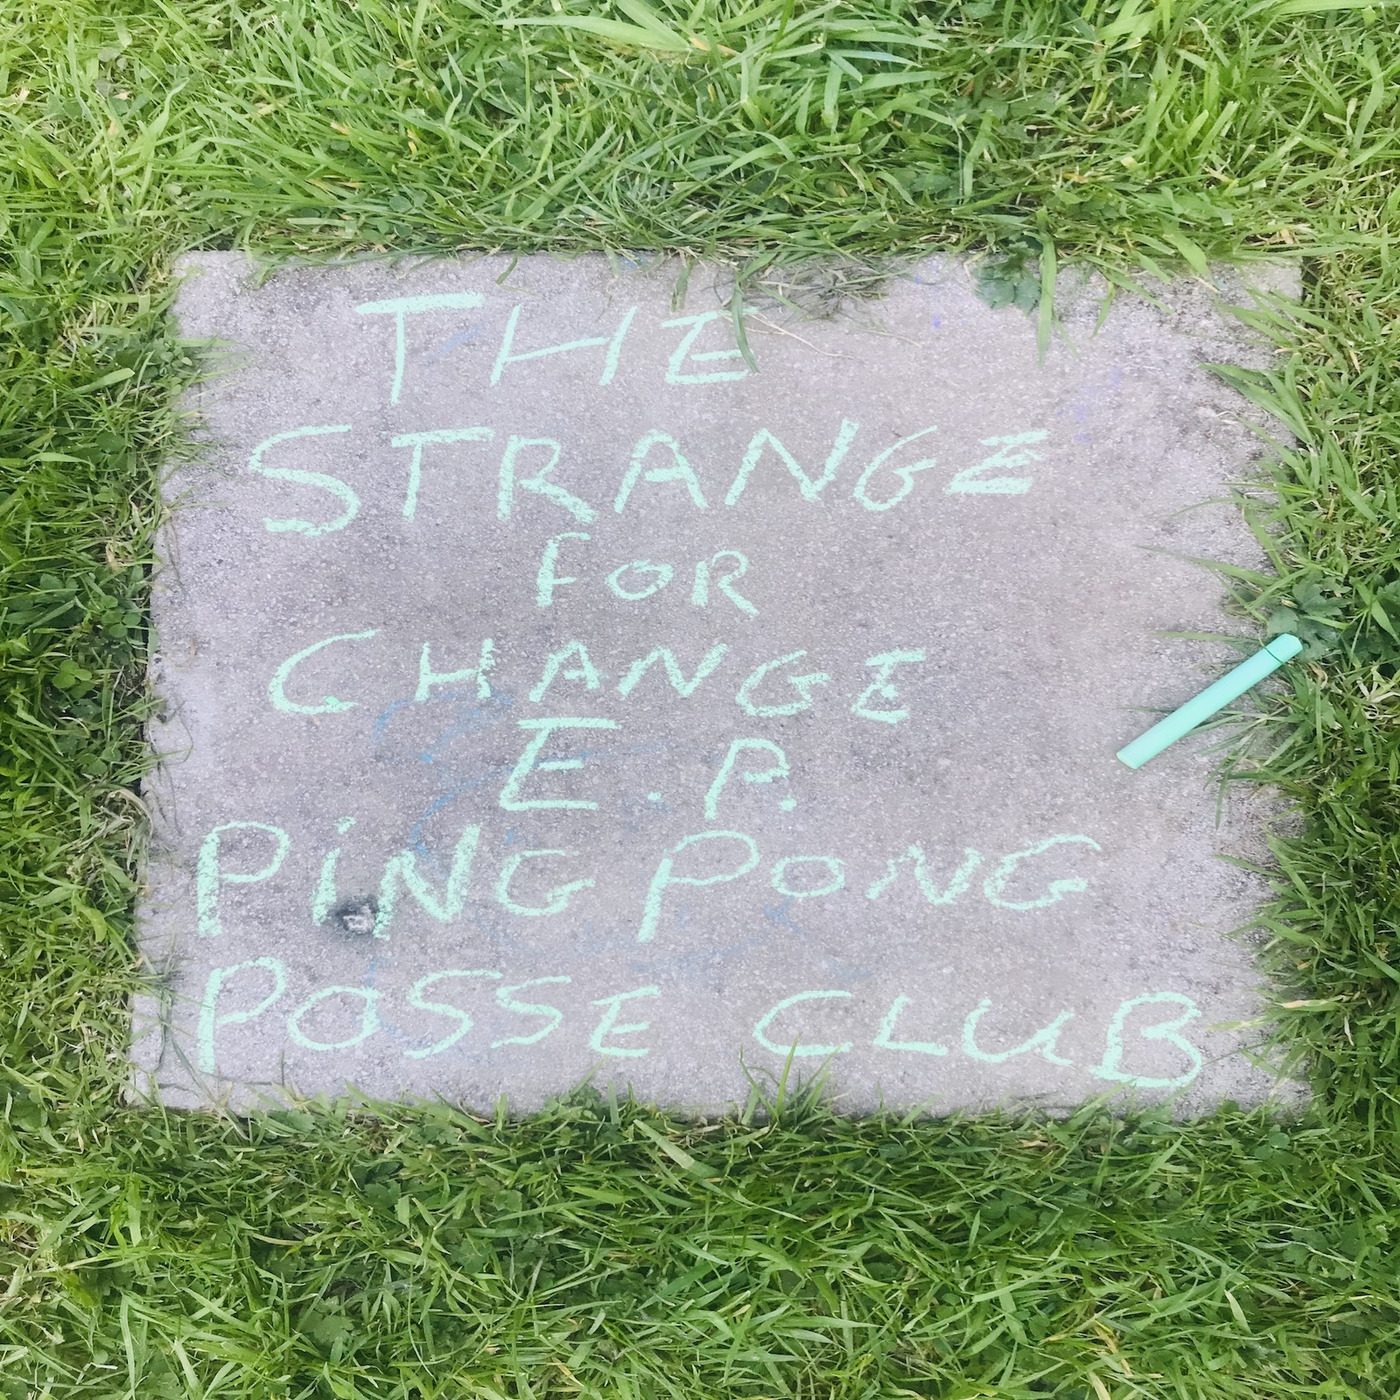 THE
STRANGE
FOR
CHANGE
E.P.
PiNG PONG
POSSE CLUB